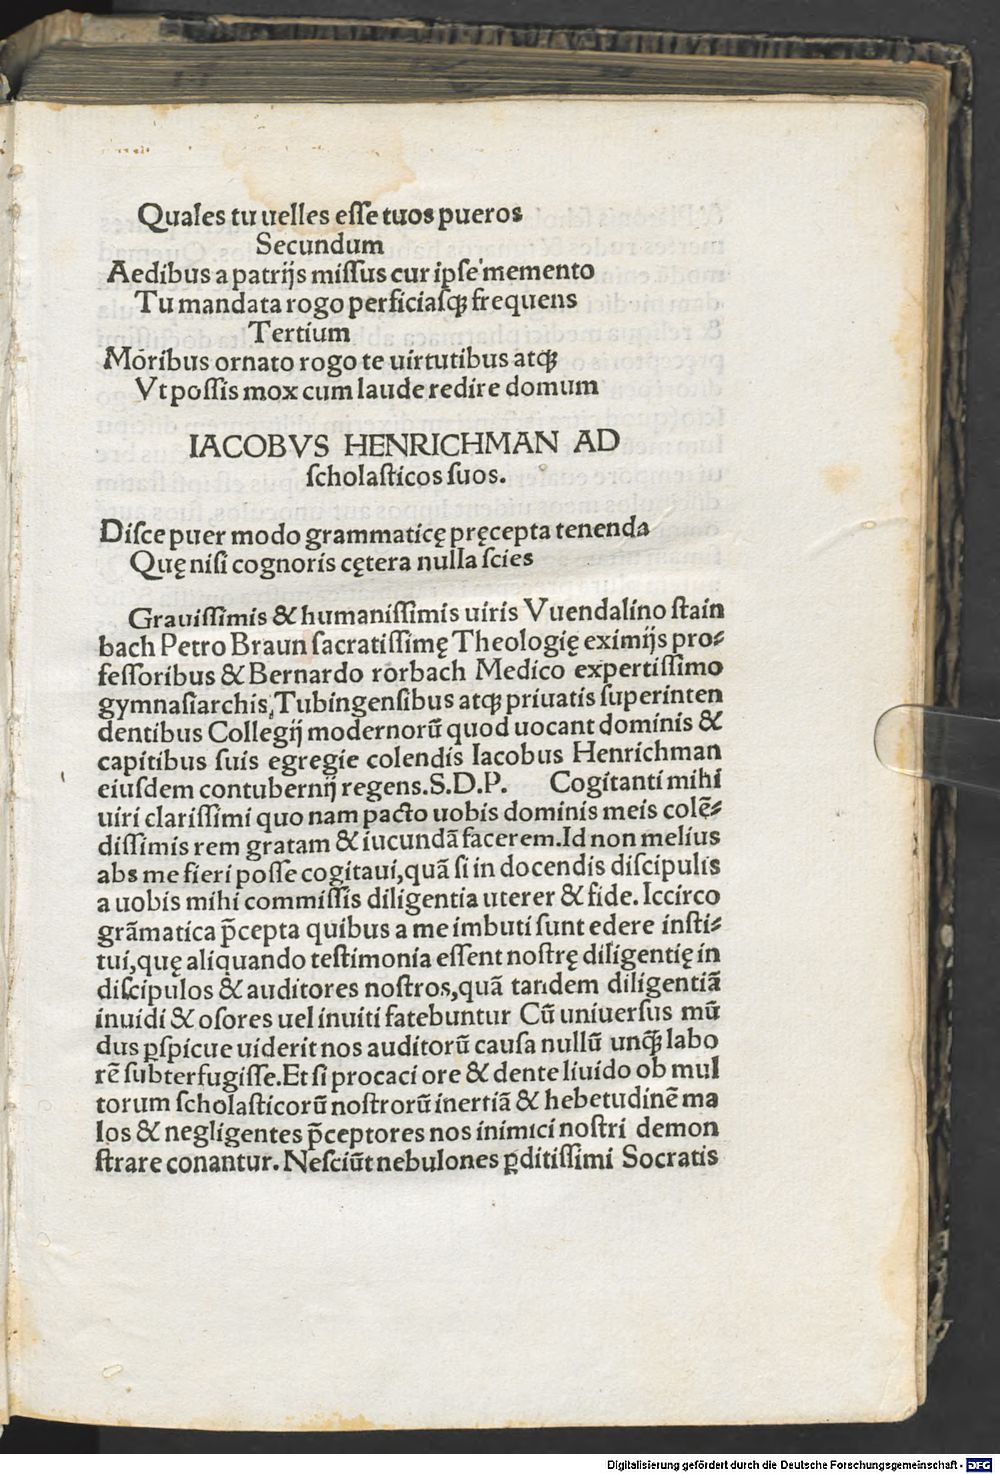 Quales tu uelles eſſe tuos pueros
Secundum
Aedibus a patrijs miſſus cur ipſe memento
Tu mandata rogo perficiaſqꝫ frequens
Tertium
Moribus ornato rogo te uirtutibus atqꝫ
Vt poſſis mox cum laude redire domum
IACOBVS HENRICHMAN AD
ſcholaſticos ſuos.
Diſce puer modo grammaticę pręcepta tenenda
Quę niſi cognoris cętera nulla ſcies
Grauiſſimis & humaniſſimis uiris Vuendalino ſtain
bach Petro Braun ſacratiſſimę Theologię eximijs pro⸗
feſſoribus & Bernardo rorbach Medico expertiſſimo
gymnaſiarchis, Tubingenſibus atqꝫ priuatis ſuperinten
dentibus Collegij modernorū quod uocant dominis &
capitibus ſuis egregie colendis Iacobus Henrichman
eiuſdem contubernij regens.S.D.P. Cogitanti mihi
uiri clariſſimi quo nam pacto uobis dominis meis colē⸗
diſſimis rem gratam & iucundā facerem.Id non melius
abs me fieri poſſe cogitaui,quā ſi in docendis diſcipulis
a uobis mihi commiſſis diligentia uterer & fide. Iccirco
grāmatica p̄cepta quibus a me imbuti ſunt edere inſti⸗
tui,quę aliquando teſtimonia eſſent noſtrę diligentię in
diſcipulos & auditores noſtros,quā tandem diligentiā
inuidi & oſores uel inuiti fatebuntur Cū uniuerſus mū
dus ꝑſpicue uiderit nos auditorū cauſa nullū unqꝫ̄ labo
rē ſubterfugiſſe.Et ſi procaci ore & dente liuido ob mul
torum ſcholaſticorū noſtrorū inertiā & hebetudinē ma
los & negligentes p̄ceptores nos inimici noſtri demon
ſtrare conantur. Neſciūt nebulones ꝑditiſſimi Socratis
Digitalisierung gefördert durch die Deutsche Forschungsgemeinschaft - DFG